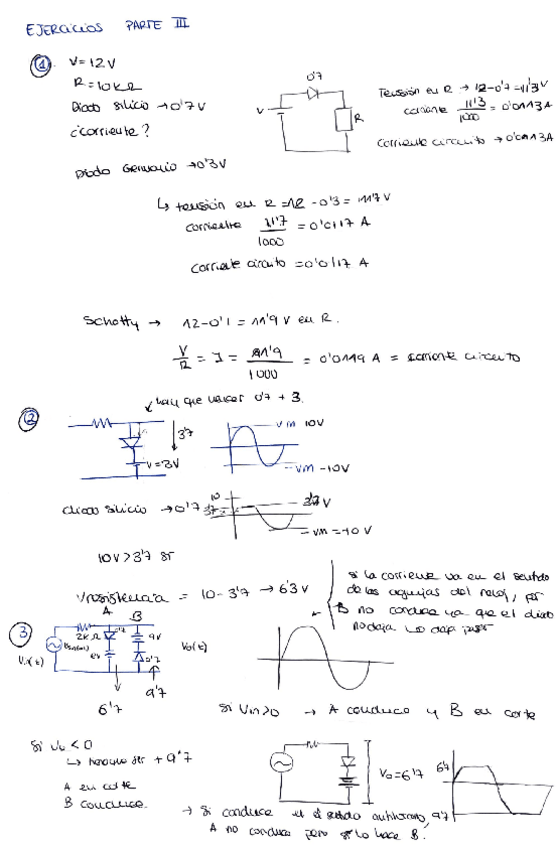 EJERCICIOS PARTE III
① V=12V
R=10KΩ
Diodo silicio →0'7V
¿corriente?
Diodo Germanio →0'3V
0'7
V
R
Tensión en R → 12-0'7=11'3V
corriente 11'3/1000 = 0'0113A
corriente circuito →0'0113A
↳ tensión en R =12 -0'3 = 11'7V
corriente 11'7/1000 = 0'0117 A
corriente circuito =0'0117 A
Schotty → 12-0'1 = 11'9 V en R.
V/R = I = 11'9/1000 = 0'0119 A = corriente circuito
② hay que vencer 0'7 + 3.
3'7
V=3V
Vm 10V
-Vm -10V
diodo silicio → 0'7
10
3'7
3'7 V
-Vm = -10V
10V>3'7 si
Vresistencia = 10-3'7 → 6'3V
si la corriente va en el sentido
de las agujas del reloj, por
B no conduce ya que el diodo
no deja
③ A B
2KΩ
0'7
9V
6V
0'7
Vi(t)
Vo(t)
6'7
9'7
Si Vin>0 → A conduce y B en corte
Si Vo<0
↳ +9'7
A en corte
B conduce.
Vo=6'7
6'7
9'7
→ Si conduce en el sentido antihorario,
A no conduce pero sí lo hace B.